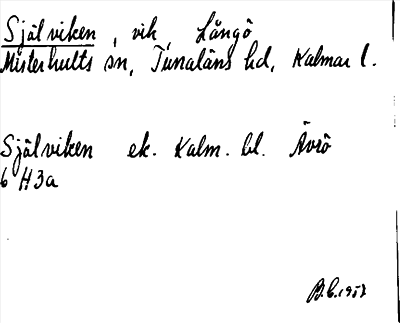 Själviken, vik, Långö
Misterhults sn, Tunaläns hd, Kalmar l.
Själviken ek. Kalm. bl. Ävrö
6 H3a